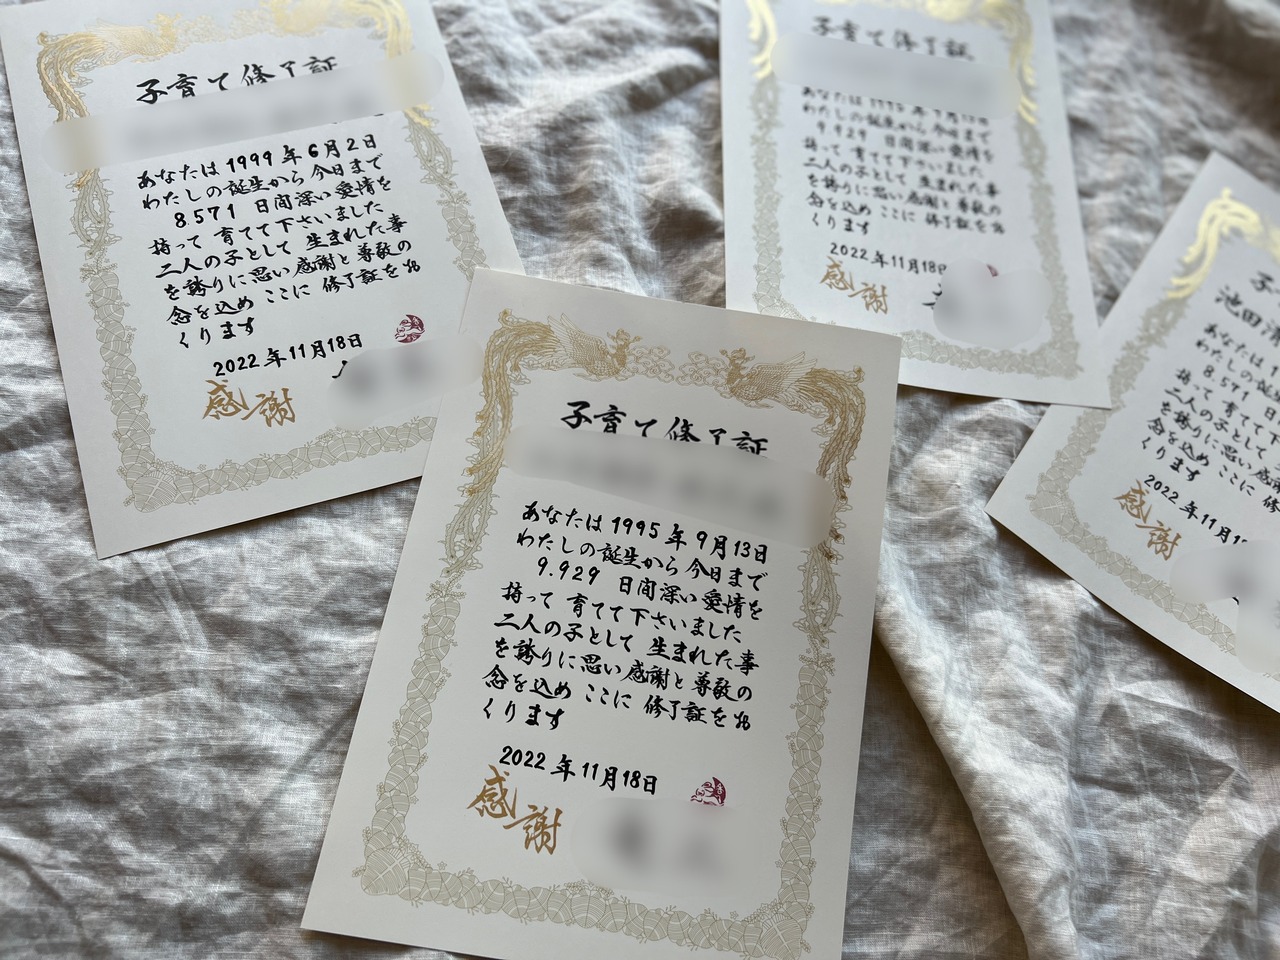 子育て修了証
あなたは1999年6月2日
わたしの誕生から今日まで
8571 日間深い愛情を
持って 育てて下さいました
二人の子として 生まれた事
を誇りに思い感謝と尊敬の
念を込め ここに 修了証をお
くります
2022年11月18日
感謝
子育て修了証
あなたは1995年9月13日
わたしの誕生から今日まで
9.929 日間深い愛情を
持って 育てて下さいました
二人の子として 生まれた事
を誇りに思い感謝と尊敬の
念を込め ここに 修了証をお
くります
2022年11月18日
感謝
子育て修了証
あなたは1995年9月13日
わたしの誕生から今日まで
9.929 日間深い愛情を
持って 育てて下さいました
二人の子として 生まれた事
を誇りに思い感謝と尊敬の
念を込め ここに 修了証をお
くります
2022年11月18日
感謝
子
池田清
あなたは1
わたしの誕生
8.571 日
持って 育てて下
二人の子として
を誇りに思い感謝
念を込め ここに 修
くります
2022年11月1
感謝